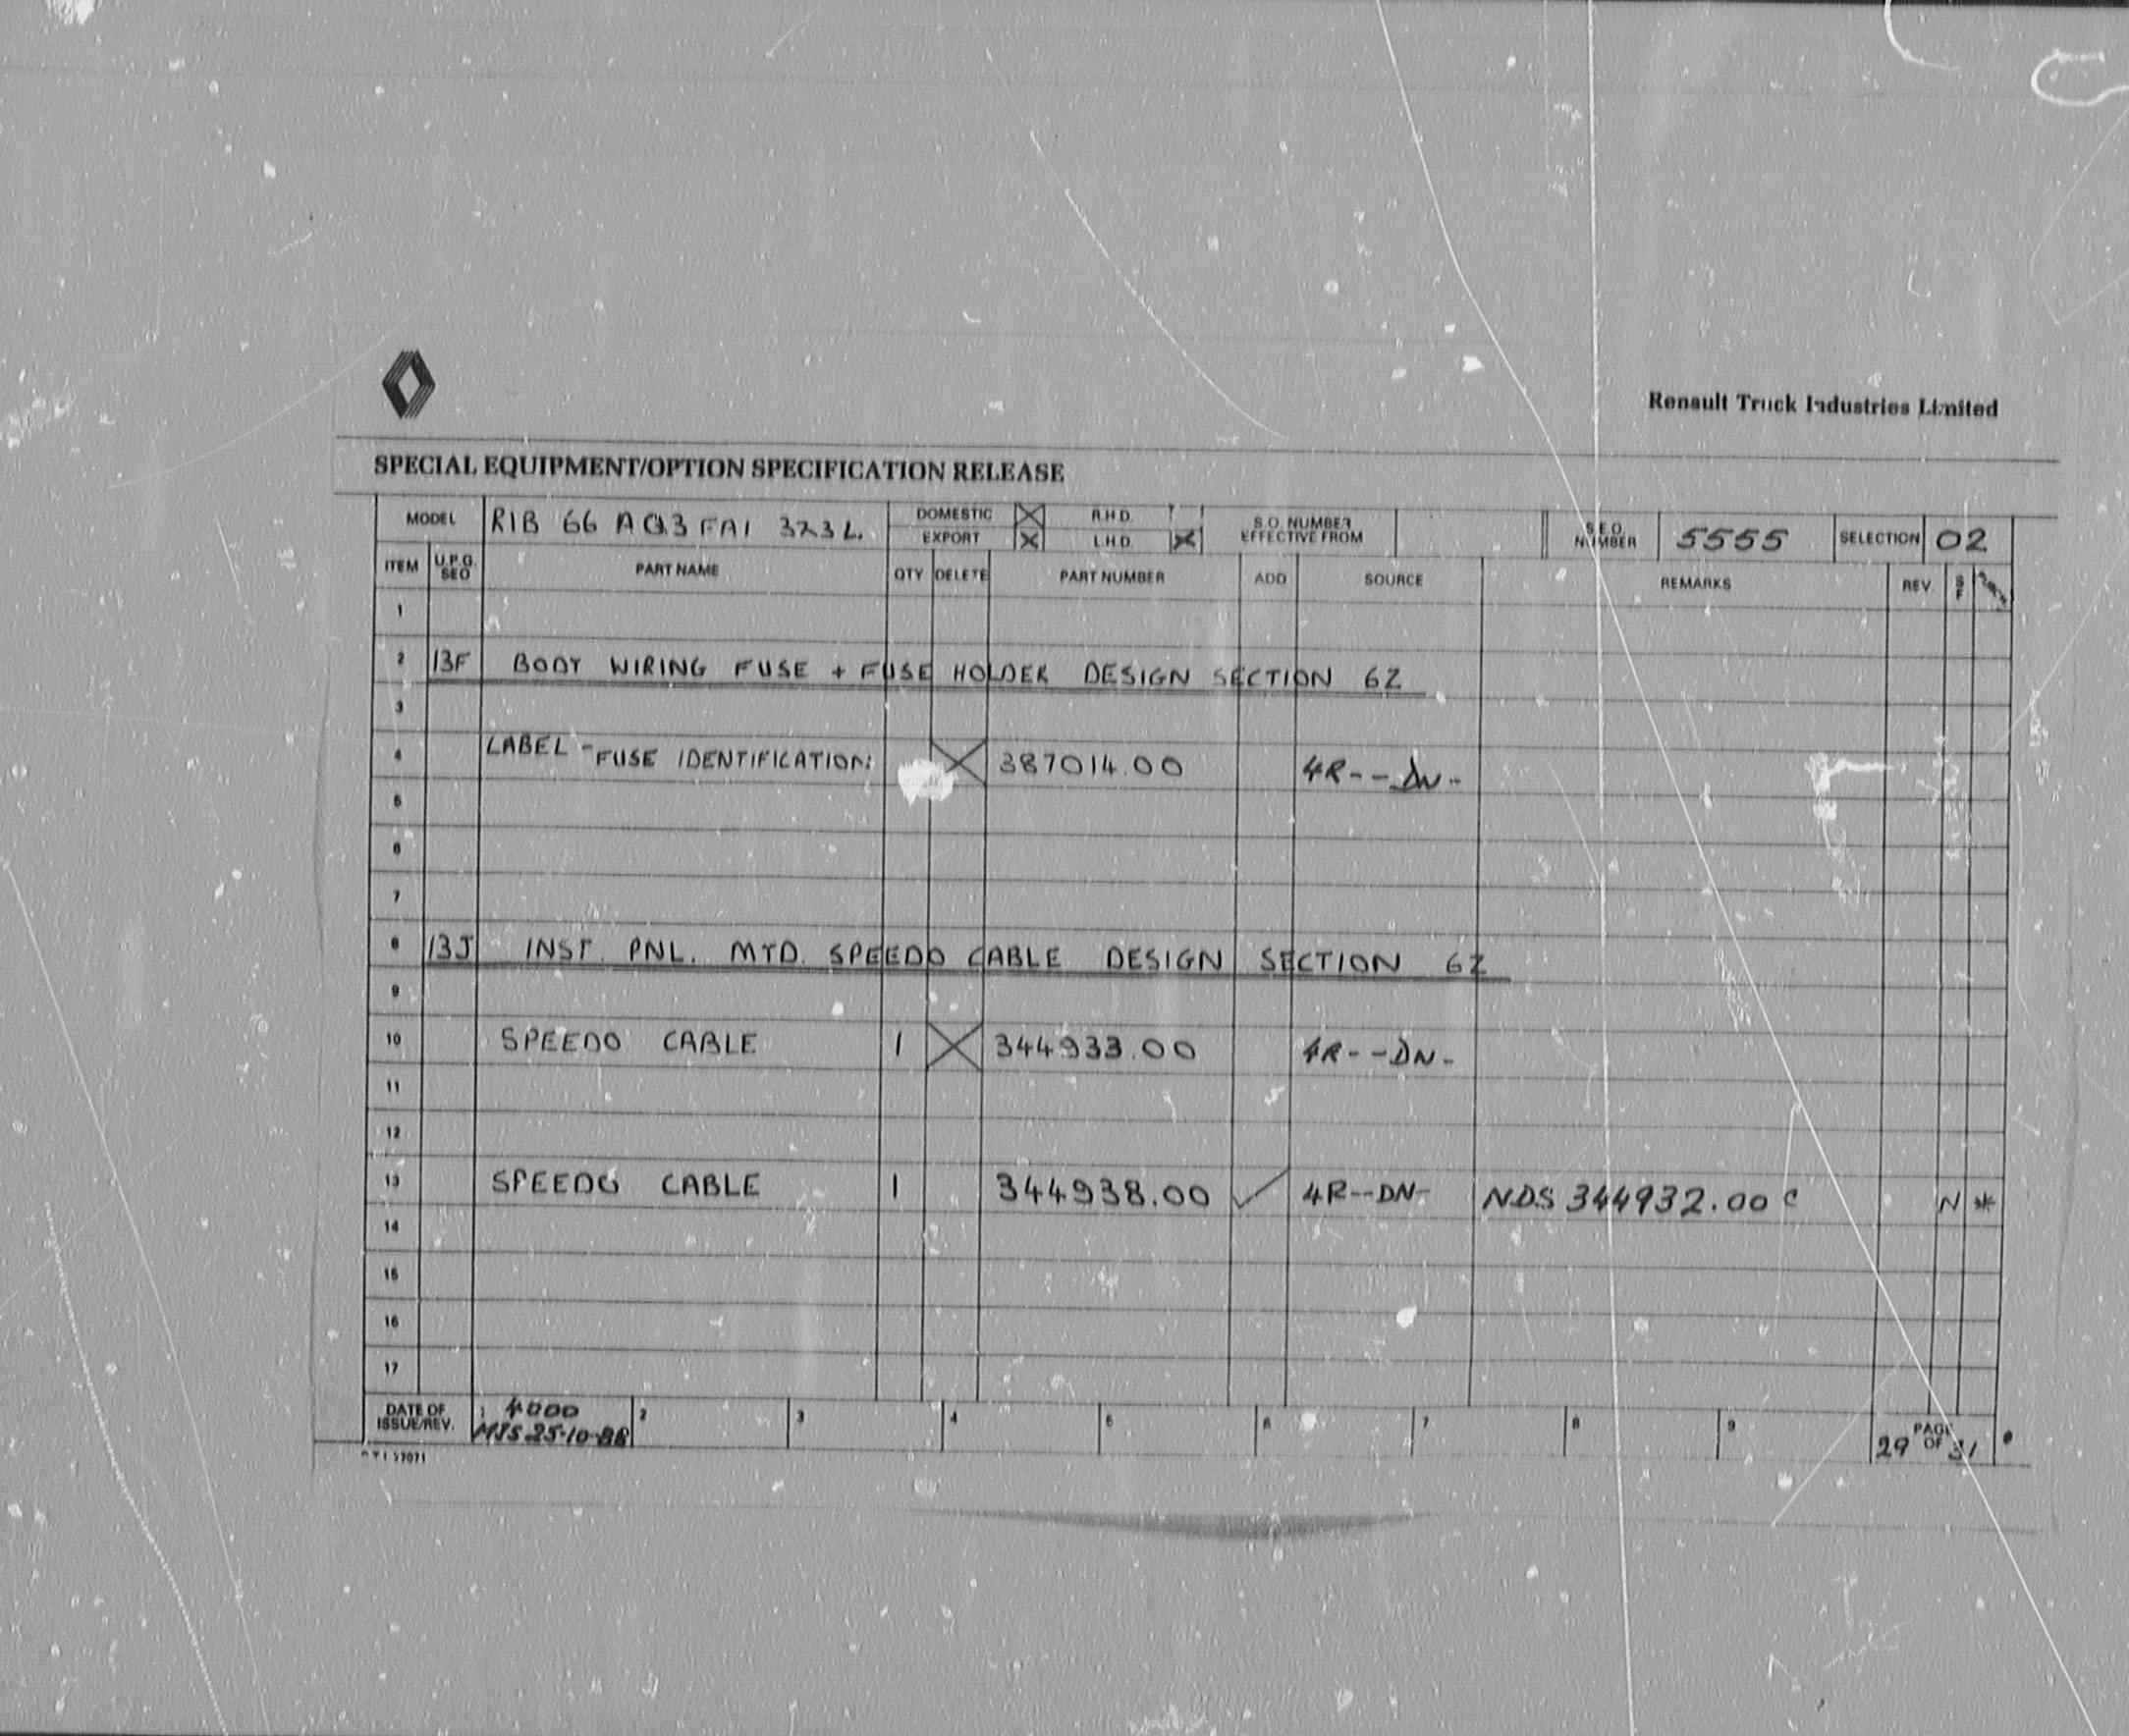 Renault Truck Industries Limited
SPECIAL EQUIPMENT/OPTION SPECIFICATION RELEASE
MODEL RIB 66 A03 FA1 323L. DOMESTIC R.H.D. EXPORT L.H.D. S.O. NUMBER EFFECTIVE FROM S.E.O. NUMBER 5555 SELECTION 02
ITEM U.P.G. SEO PART NAME QTY DELETE PART NUMBER ADD SOURCE REMARKS REV. S F
1
2 13F BODY WIRING FUSE + FUSE HOLDER DESIGN SECTION 6Z
3
4 LABEL - FUSE IDENTIFICATION 387014.00 4R--DN-
5
6
7
8 13J INST. PNL. MTD. SPEEDO CABLE DESIGN SECTION 6Z
9
10 SPEEDO CABLE 1 344933.00 4R--DN-
11
12
13 SPEEDO CABLE 1 344938.00 ✓ 4R--DN- NDS 344932.00 C N *
14
15
16
17
DATE OF ISSUE/REV. 1 4000 2 3 4 5 6 7 8 9 PAGE 29 OF 31
MJS 25-10-88